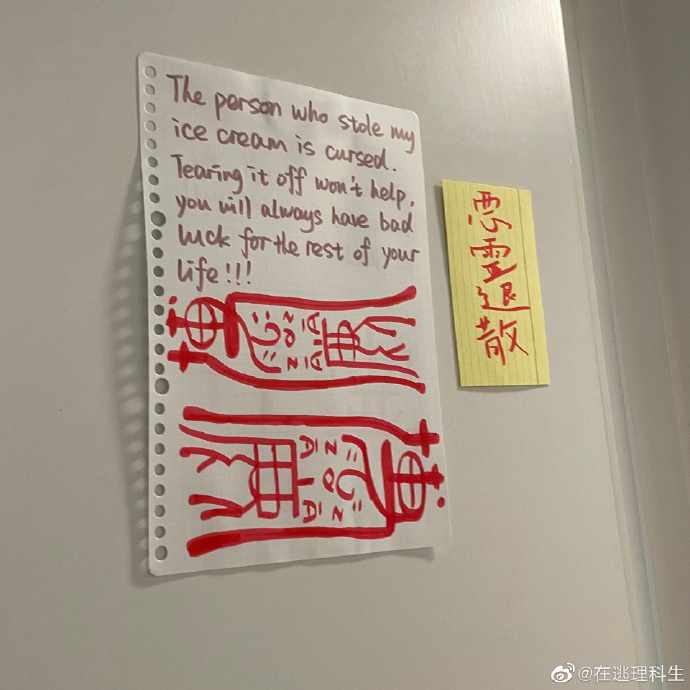 The person who stole my
ice cream is cursed.
Tearing it off won't help,
you will always have bad
luck for the rest of your
life!!!
恶灵退散
@在逃理科生